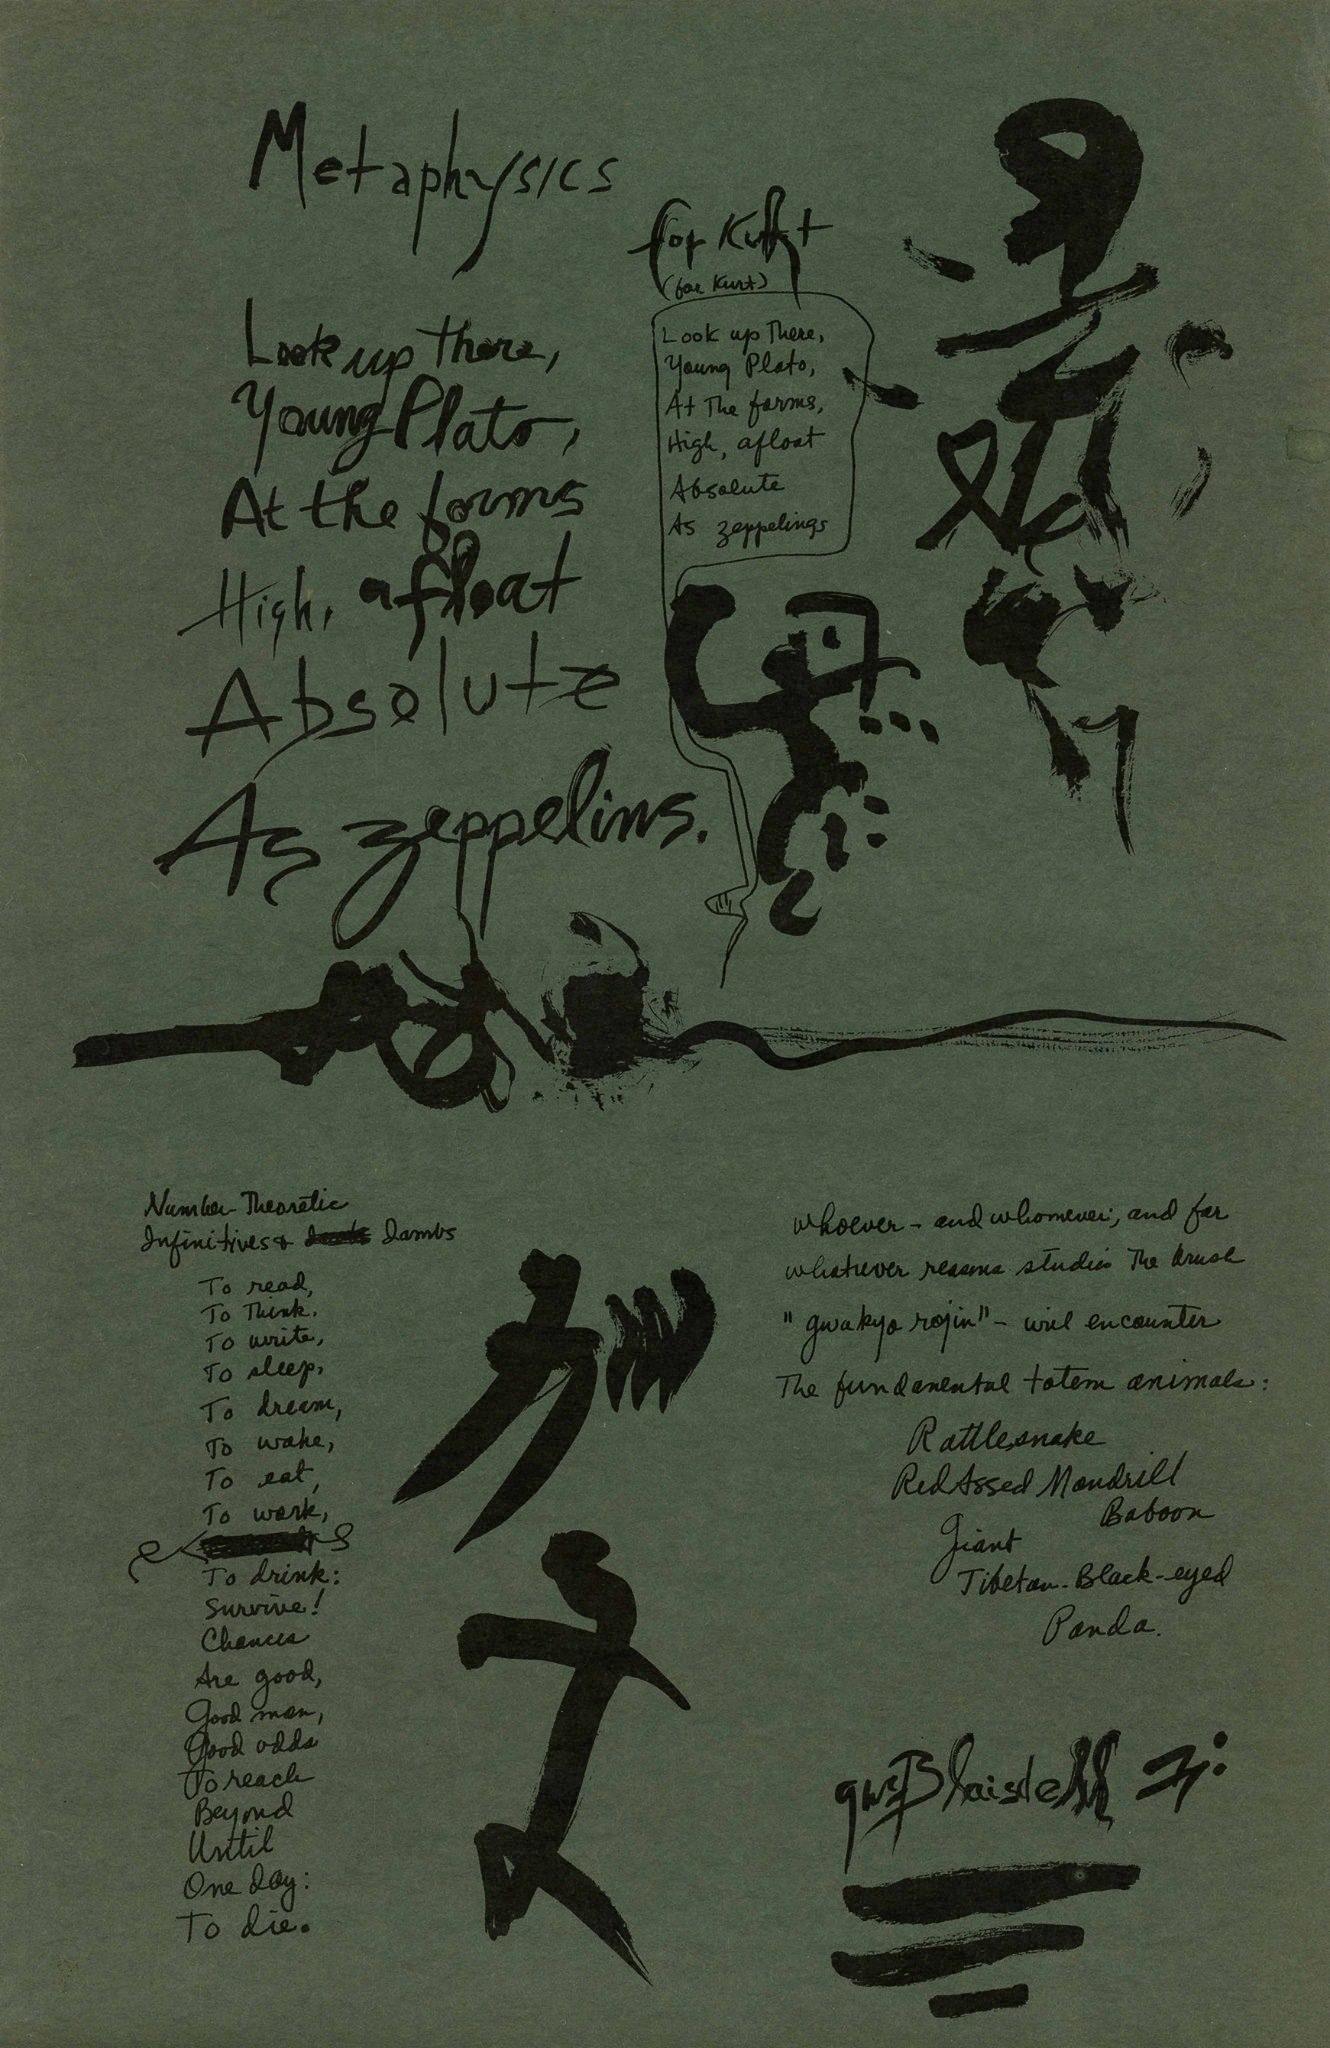 Metaphysics
for Kurt
(for Kurt)
Look up there,
Young Plato,
At the forms
High, afloat
Absolute
As zeppelins.
Look up There,
Young Plato,
At The forms,
High, afloat
Absolute
As zeppelings
Number-Theoretic
Infinitives & Iambs
To read,
To Think.
To write,
To sleep,
To dream,
To wake,
To eat,
To work,
To drink:
Survive!
Chances
Are good,
Good man,
Good odds
To reach
Beyond
Until
One day:
To die.
whoever - and whomever, and for
whatever reasons studies The brush
"gwakyo rojin" - will encounter
The fundamental totem animals:
Rattlesnake
Red Assed Mandrill
Baboon
Giant
Tibetan-Black-eyed
Panda.
gus Blaisdell